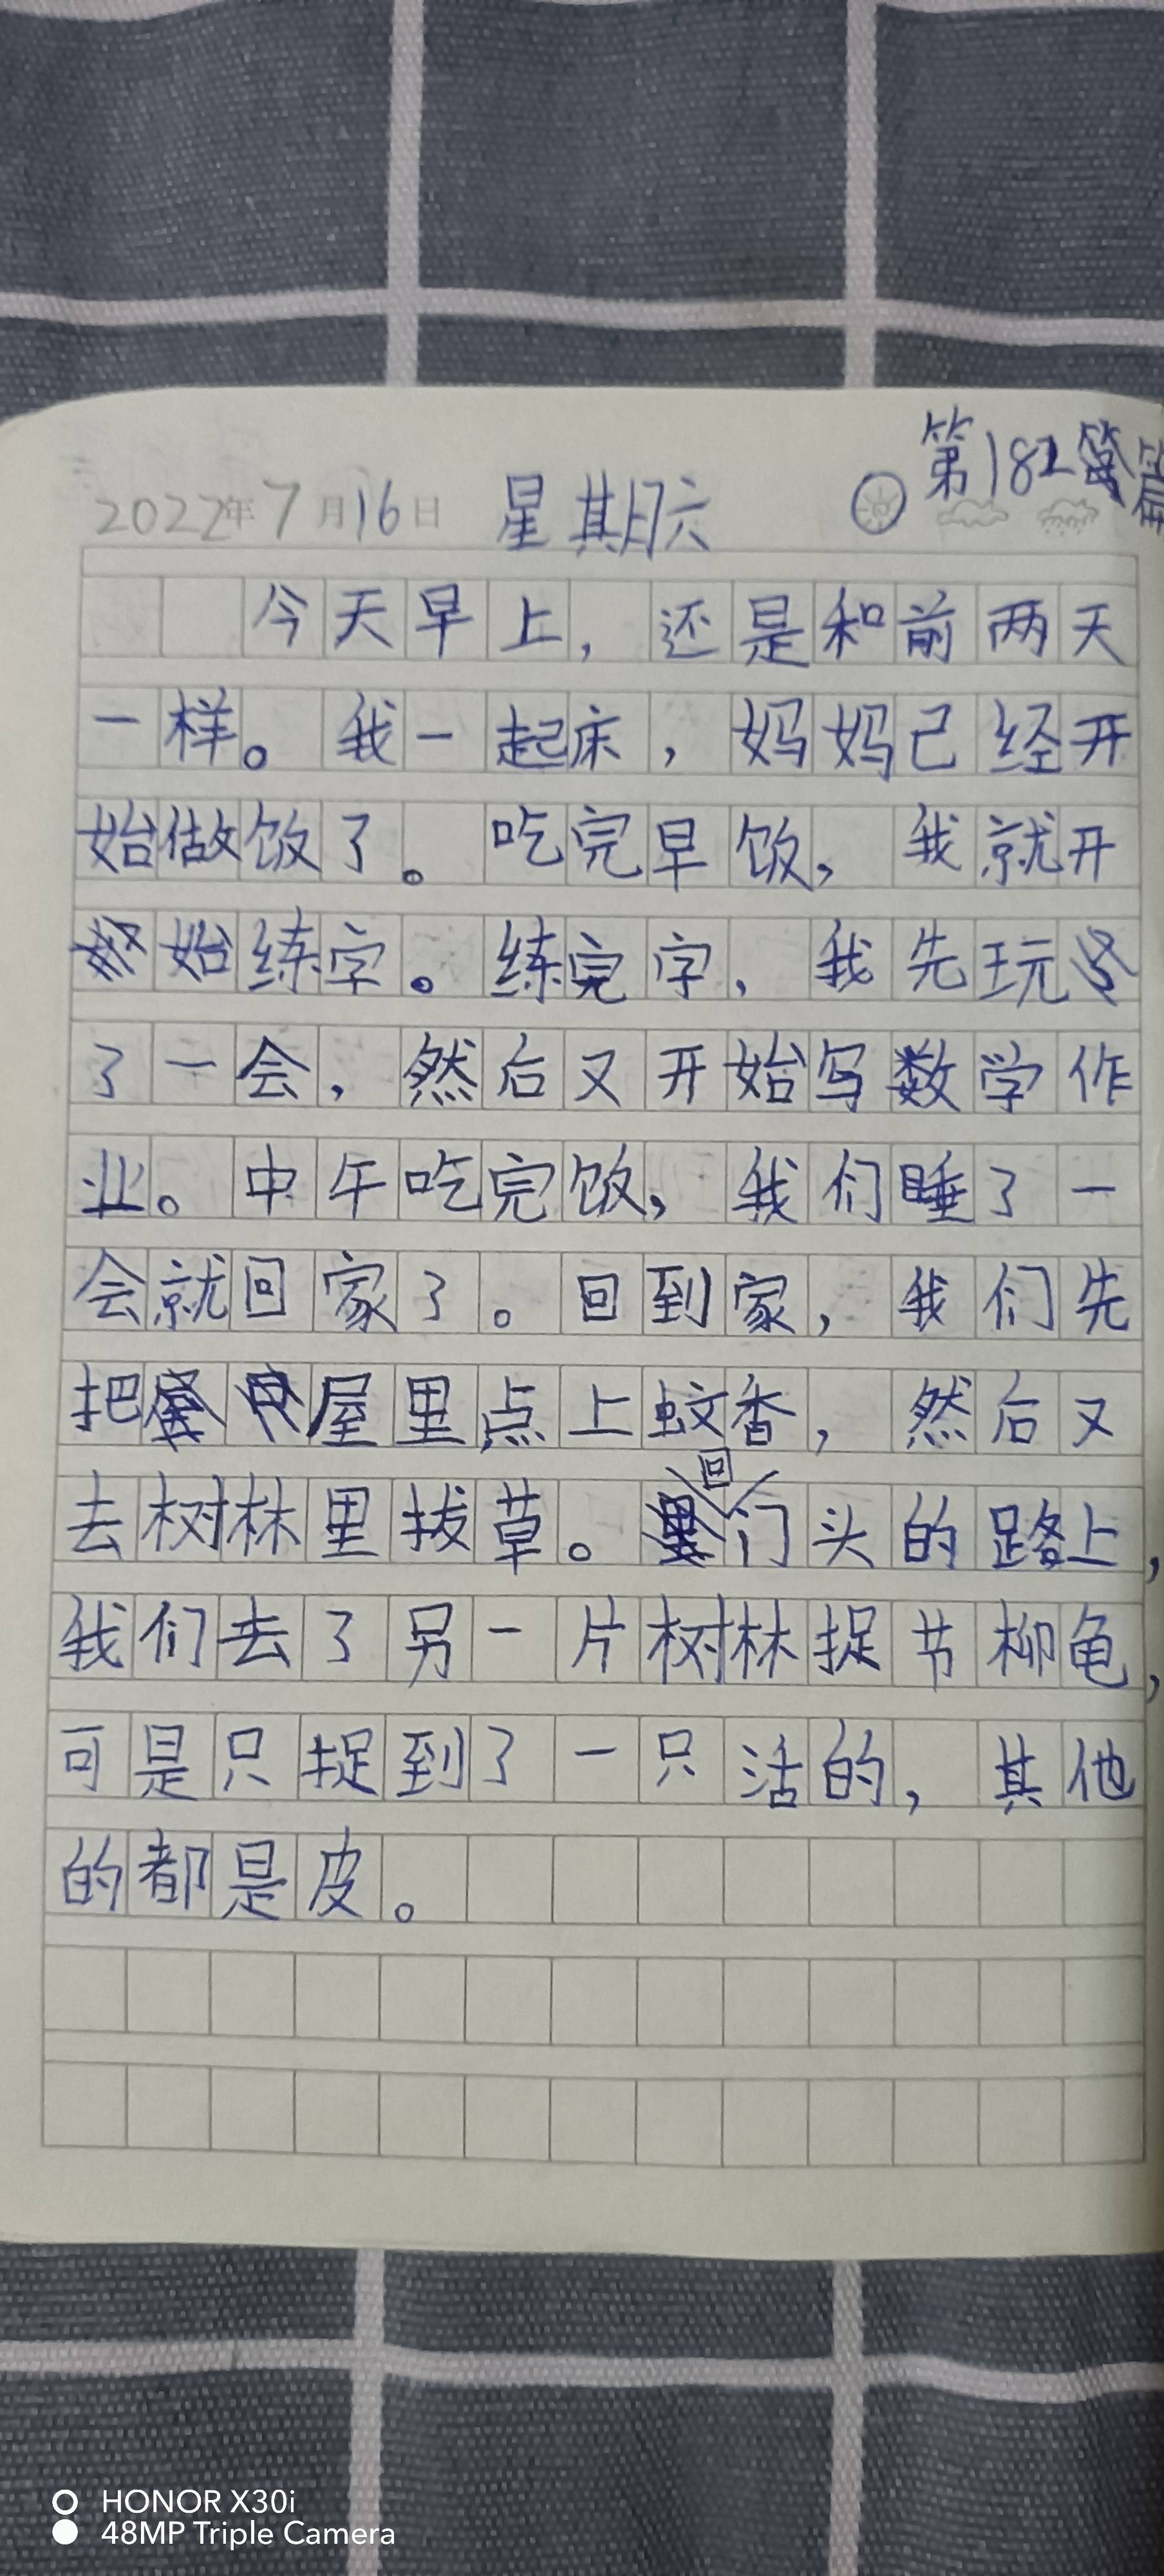 第182篇
2022年7月16日 星期六
今天早上，还是和前两天
一样。我一起床，妈妈己经开
始做饭了。吃完早饭，我就开
始练字。练完字，我先玩
了一会，然后又开始写数学作
业。中午吃完饭，我们睡了一
会就回家了。回到家，我们先
把屋里点上蚊香，然后又
去树林里拔草。回门头的路上，
我们去了另一片树林捉节柳龟，
可是只捉到了一只活的，其他
的都是皮。
HONOR X30i
48MP Triple Camera